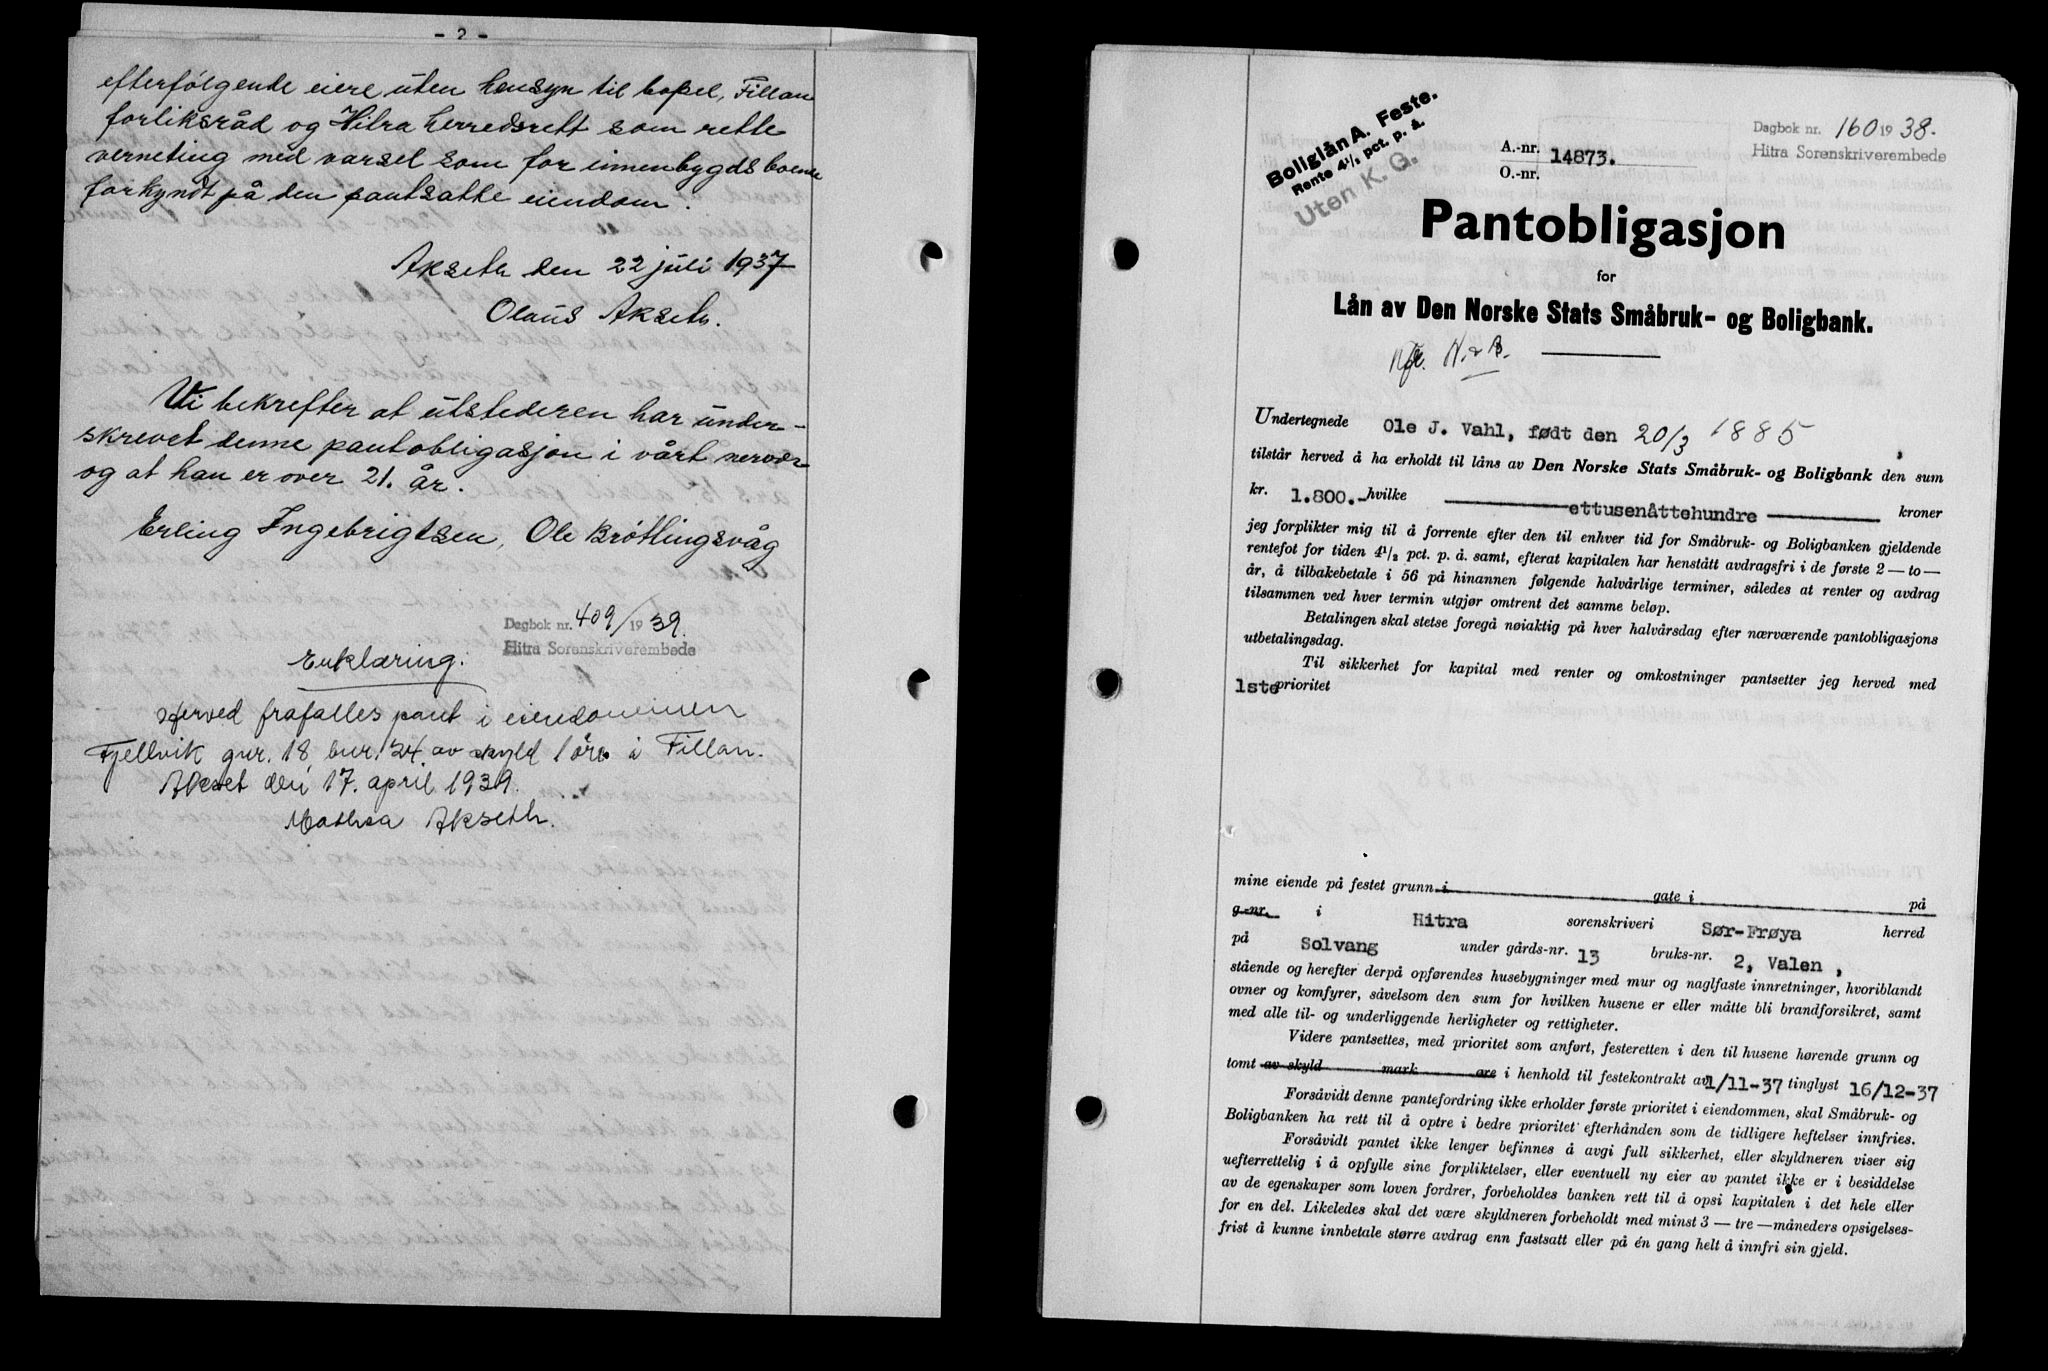 - 2 -
efterfølgende eiere uten hensyn til bopel, Fillan
forliksråd og Hitra herredsrett som rette
verneting med varsel som for innenbygds boende
forkyndt på den pantsatte eiendom.
Akseth den 22 juli 1937
Olaus Akseth.
Vi bekrefter at utstederen har under-
skrevet denne pantobligasjon i vårt nervær
og at han er over 21. år.
Erling Ingebrigtsen, Ole Brøttingsvåg
Dagbok nr. 409/1939.
Hitra Sorenskriverembede
Erklæring.
Herved frafalles pant i eiendommen
Fjellvik gnr. 18, bnr. 24 av skyld 1 øre i Fillan.
Akset den 17. april 1939.
Mathea Akseth.
Boliglån A. Feste.
Rente 4½ pct. p. å.
Uten K. G.
A.-nr. 14873.
O.-nr.
Dagbok nr. 160 1938.
Hitra Sorenskriverembede
Pantobligasjon
for
Lån av Den Norske Stats Småbruk- og Boligbank.
Undertegnede Ole J. Vahl, født den 20/3 1885,
tilstår herved å ha erholdt til låns av Den Norske Stats Småbruk- og Boligbank den sum
kr. 1.800.- hvilke ettusenåttehundre kroner
jeg forplikter mig til å forrente efter den til enhver tid for Småbruk- og Boligbanken gjeldende
rentefot for tiden 4½ pct. p. å. samt, efterat kapitalen har henstått avdragsfri i de første 2 — to —
år, å tilbakebetale i 56 på hinannen følgende halvårlige terminer, således at renter og avdrag
tilsammen ved hver termin utgjør omtrent det samme beløp.
Betalingen skal stetse foregå nøiaktig på hver halvårsdag efter nærværende pantobligasjons
utbetalingsdag.
Til sikkerhet for kapital med renter og omkostninger pantsetter jeg herved med
1ste prioritet
mine eiende på festet grunn i gate i på
g.-nr. i Hitra sorenskriveri Sør-Frøya herred
på Solvang under gårds-nr. 13 bruks-nr. 2, Valen,
stående og herefter derpå opførendes husebygninger med mur og naglfaste innretninger, hvoriblandt
ovner og komfyrer, såvelsom den sum for hvilken husene er eller måtte bli brandforsikret, samt
med alle til- og underliggende herligheter og rettigheter.
Videre pantsettes, med prioritet som anført, festeretten i den til husene hørende grunn og
tomt av skyld mark øre i henhold til festekontrakt av 1/11-37 tinglyst 16/12-37
Forsåvidt denne pantefordring ikke erholder første prioritet i eiendommen, skal Småbruk- og
Boligbanken ha rett til å optre i bedre prioritet efterhånden som de tidligere heftelser innfries.
Forsåvidt pantet ikke lenger befinnes å avgi full sikkerhet, eller skyldneren viser sig
uefterrettelig i å opfylle sine forpliktelser, eller eventuell ny eier av pantet ikke er i besiddelse
av de egenskaper som loven fordrer, forbeholdes banken rett til å opsi kapitalen i det hele eller
for en del. Likeledes skal det være skyldneren forbeholdt med minst 3 — tre — måneders opsigelses-
frist å kunne innbetale større avdrag enn fastsatt eller på én gang helt å innfri sin gjeld.